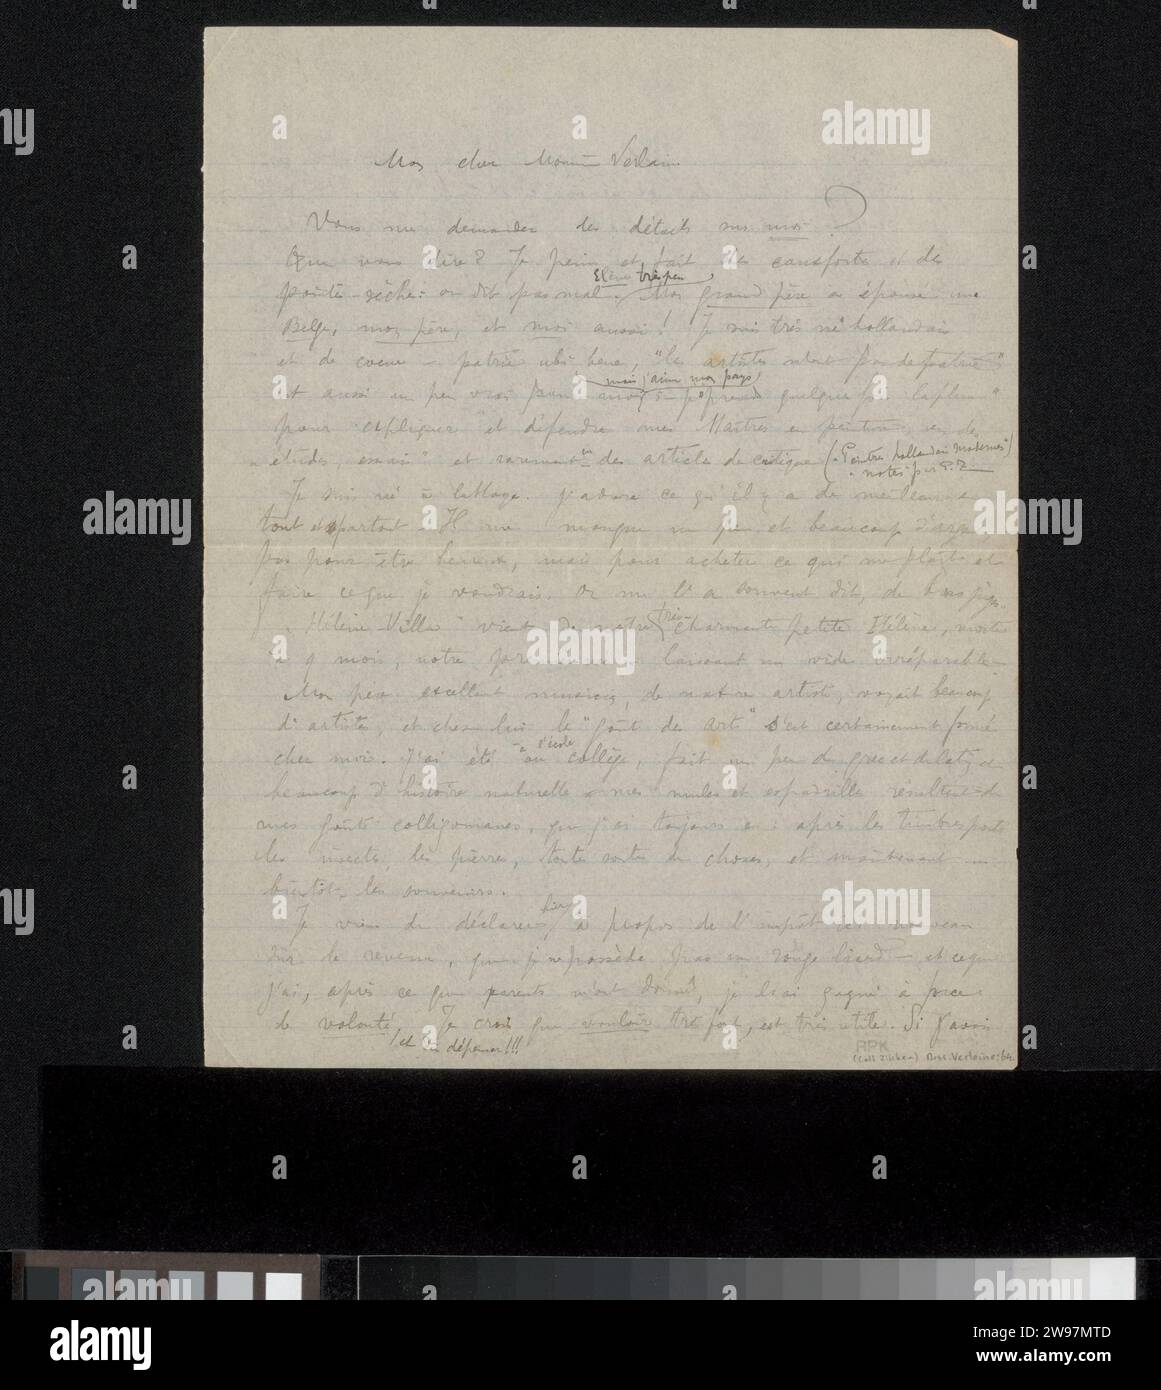 Mon cher Monsieur Verlaine
Vous me demandez des détails sur moi?
Que vous dire? Je peins et fait des eauxfortes et des
Elève très peu
pointes sèches: on dit pas mal. Mon grand père a épousé une
Belge, mon père, et moi aussi! Je suis très né hollandais
et de coeur patria ubi bene, "les artistes n'ont pas de patrie"
mais j'aime mon pays
et aussi un peu vrai pour moi je prends quelque fois la plume
pour expliquer et défendre mes Maîtres en peinture, en des
"études, essais" et rarement en des articles de critique ("Peintres hollandais modernes"
notes par P.Z.
Je suis né à la Haye. j'adore ce qu'il y a de meilleur en
tout et partout. Il me manque un peu et beaucoup d'argent
pas pour être heureux, mais pour acheter ce qui me plaît et
faire ce que je voudrais. On me l'a souvent dit, de
"Hélène Villa" vient de notre très charmante petite Hélène, morte
à 9 mois, notre laissant un vide irréparable
Mon père excellent musicien, de nature artiste, voyait beaucoup
d'artistes, et chez lui le "goût des arts" s'est certainement formé
chez moi. J'ai été à l'école au collège, fait un peu de grec et de latin et
beaucoup d'histoire naturelle résultent de
mes goûts collegomanes, que j'ai toujours eu: après les timbres poste
les insectes, les pierres, toutes sortes de choses, et maintenant
bientôt les souvenirs.
Je viens de déclarer hier, à propos de l'impôt nouveau
sur le revenu, que je ne possède pas un rouge liard et ce que
j'ai, après ce que parents m'ont donné, je l'ai gagné à force
de volonté, Je crois que vouloir très fort, est très utile. Si j'avais
et en dépenser!!!
RPK
(coll Zilcken) Mss. Verlaine: 64
alamy
2W97MTD
www.alamy.com